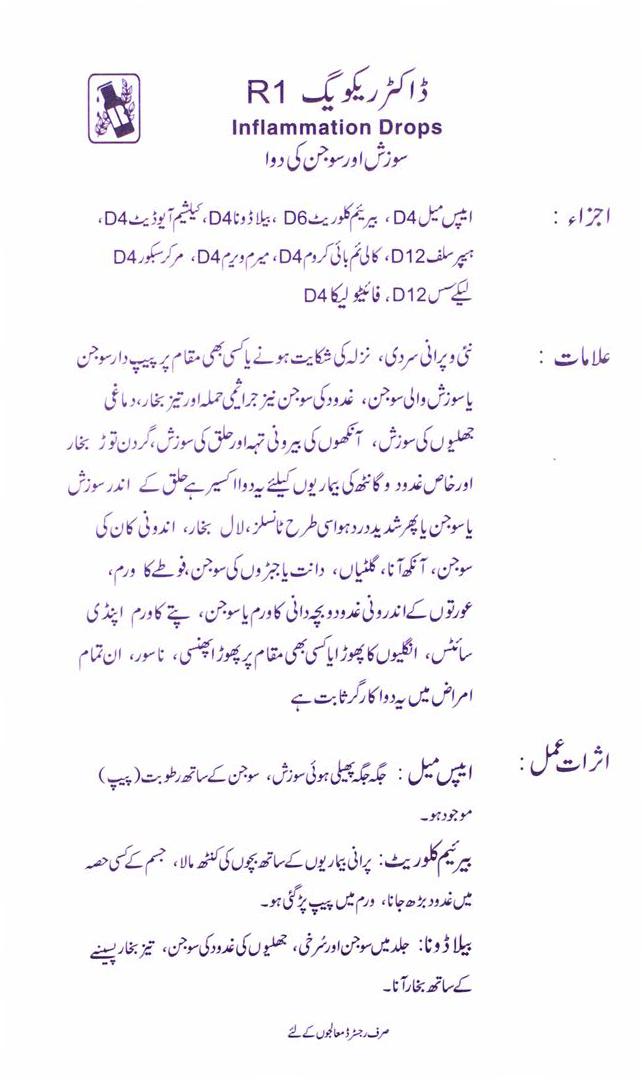 ڈاکٹر ریکویگ R1
Inflammation Drops
سوزش اور سوجن کی دوا
اجزاء : ایپس میل D4، بیرئیم کلوریٹ D6، بیلا ڈونا D4، کیلشیم آیوڈیٹ D4،
ہیپر سلف D12، کالی ئم بائی کروم D4، میرم ویرم D4، مرکر سبکور D4
لیکے سس D12، فائیٹو لیکا D4
علامات : نئی و پرانی سردی، نزلہ کی شکایت ہونے یا کسی بھی مقام پر پیپ دار سوجن
یا سوزش والی سوجن، غدود کی سوجن نیز جراثیمی حملہ اور تیز بخار، دماغی
جھلیوں کی سوزش، آنکھوں کی بیرونی تہہ اور حلق کی سوزش، گردن توڑ بخار
اور خاص غدود و گانٹھ کی بیماریوں کیلئے یہ دوا اکسیر ہے حلق کے اندر سوزش
یا سوجن یا پھر شدید درد ہو اسی طرح ٹانسلز، لال بخار، اندونی کان کی
سوجن، آنکھ آنا، گلٹیاں، دانت یا جبڑوں کی سوجن، فوطے کا ورم،
عورتوں کے اندرونی غدود و بچہ دانی کا ورم یا سوجن، پتے کا ورم اپنڈی
سائٹس، انگلیوں کا پھوڑا یا کسی بھی مقام پر پھوڑا پھنسی، ناسور، ان تمام
امراض میں یہ دوا کارگر ثابت ہے
اثرات عمل : ایپس میل : جگہ جگہ پھیلی ہوئی سوزش، سوجن کے ساتھ رطوبت (پیپ)
موجود ہو۔
بیرئیم کلوریٹ : پرانی بیماریوں کے ساتھ بچوں کی کنٹھ مالا، جسم کے کسی حصہ
میں غدود بڑھ جانا، ورم میں پیپ پڑ گئی ہو۔
بیلا ڈونا : جلد میں سوجن اور سُرخی، جھلیوں کی غدود کی سوجن، تیز بخار پسینے
کے ساتھ بخار آنا۔
صرف رجسٹرڈ معالجوں کے لئے